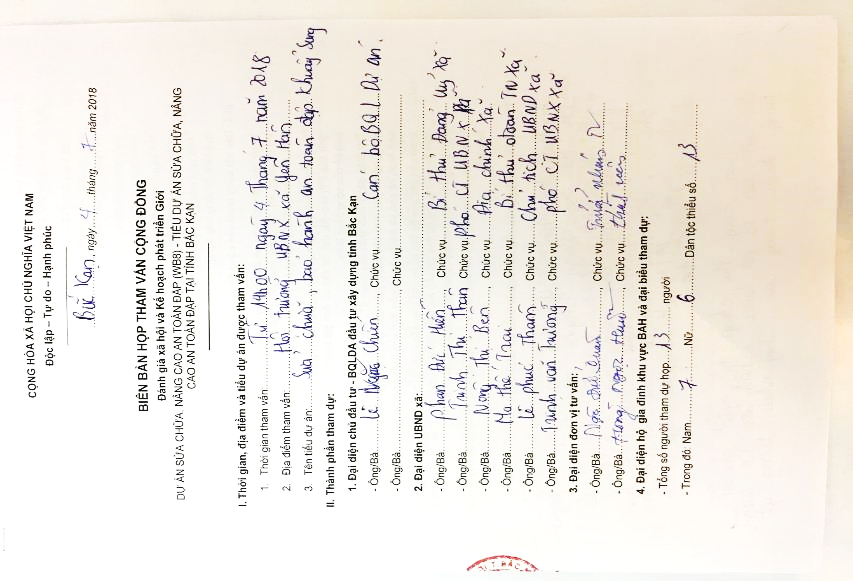 CỘNG HÒA XÃ HỘI CHỦ NGHĨA VIỆT NAM
Độc lập – Tự do – Hạnh phúc
Bắc Kạn, ngày 4 tháng 7 năm 2018
BIÊN BẢN HỌP THAM VẤN CỘNG ĐỒNG
Đánh giá xã hội và Kế hoạch phát triển Giới
DỰ ÁN SỬA CHỮA NÂNG CAO AN TOÀN ĐẬP (WB8) - TIỂU DỰ ÁN SỬA CHỮA, NÂNG
CAO AN TOÀN ĐẬP TẠI TỈNH BẮC KẠN
I. Thời gian, địa điểm và tiểu dự án được tham vấn:
1. Thời gian tham vấn: Từ 14h00 ngày 4 Tháng 7 năm 2018
2. Địa điểm tham vấn: Hội trường UBNX xã Yên Hân
3. Tên tiểu dự án: Sửa chữa, bảo hành an toàn đập Khuổi Sung
II. Thành phần tham dự:
1. Đại diện chủ đầu tư - BQLDA đầu tư xây dựng tỉnh Bắc Kạn
- Ông/Bà Lê Chức vụ Cán bộ BQL Dự án.
- Ông/Bà Chức vụ
2. Đại diện UBND xã:
- Ông/Bà Phan Đức Hiền Chức vụ Bí thư Đảng uỷ xã
- Ông/Bà Trịnh Thị Chức vụ phó CT UBNX xã
- Ông/Bà Nông Thị Bến Chức vụ Địa chính xã
- Ông/Bà Ma thế Chức vụ Bí thư đoàn TN xã
- Ông/Bà Lê phúc Chức vụ Chủ tịch UBND xã
- Ông/Bà Trịnh văn Trường Chức vụ phó CT UBNX xã
3. Đại diện đơn vị tư vấn:
- Ông/Bà Ngô Chức vụ Trưởng nhóm TV
- Ông/Bà Chức vụ thành viên
4. Đại diện hộ gia đình khu vực BAH và đại biểu tham dự:
- Tổng số người tham dự họp 13 người
- Trong đó Nam 7 Nữ 6 Dân tộc thiểu số 13